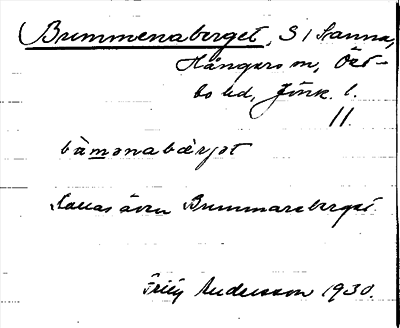 Brummenaberget, S/ Sanna,
Hångers sn, Öst-
bo hd, Jönk. l.
11.
bramənabærjət
Kallas även Brummareberget
Andersson 1930.